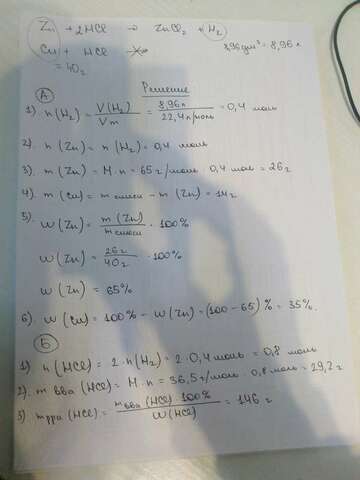 Zn + 2HCl → ZnCl₂ + H₂
Cu + HCl ↛ 8,96 дм³ = 8,96 л
= 40г
Решение
А
1) n(H₂) = V(H₂)/Vm = 8,96л/22,4л/моль = 0,4 моль
2). n(Zn) = n(H₂) = 0,4 моль
3). m(Zn) = M · n = 65г/моль · 0,4 моль = 26г
4). m(Cu) = mсмеси − m(Zn) = 14г
5). W(Zn) = m(Zn)/mсмеси · 100%
W(Zn) = 26г/40г · 100%
W(Zn) = 65%
6). W(Cu) = 100% − W(Zn) = (100 − 65)% = 35%.
Б
1) n(HCl) = 2 · n(H₂) = 2 · 0,4 моль = 0,8 моль
2). m вва (HCl) = M · n = 36,5г/моль · 0,8 моль = 29,2г
3) mрра (HCl) = mвва (HCl) 100%/W(HCl) = 146 г